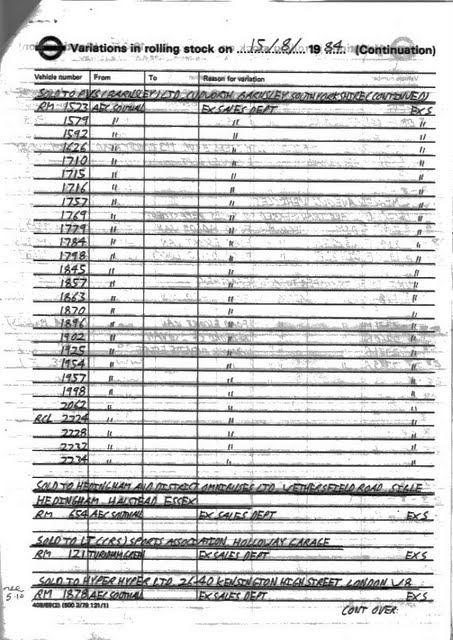 Variations in rolling stock on 15/8/ 1984 (Continuation)
Vehicle number From To Reason for variation
SOLD TO PVS (BARNSLEY) LTD, CUDWORTH BARNSLEY SOUTH YORKSHIRE (CONTINUED)
RM 1523 AEC SOUTHALL EX SALES DEPT EX S
1579 " " "
1592 " " "
1626 " " "
1710 " " "
1715 " " "
1716 " " "
1757 " " "
1769 " " "
1779 " " "
1784 " " "
1798 " " "
1845 " " "
1857 " " "
1863 " " "
1870 " " "
1896 " " "
1902 " " "
1925 " " "
1954 " " "
1957 " " "
1998 " " "
2062 " " "
RCL 2224 " " "
2228 " " "
2232 " " "
2234 " " "
SOLD TO HEDINGHAM AND DISTRICT OMNIBUSES LTD, WETHERSFIELD ROAD, SIBLE
HEDINGHAM HALSTEAD ESSEX
RM 654 AEC SOUTHALL EX SALES DEPT EX S
SOLD TO LT (CRS) SPORTS ASSOCIATION, HOLLOWAY GARAGE
RM 121 TURNHAM GREEN EX SALES DEPT EX S
SOLD TO HYPER HYPER LTD, 26-40 KENSINGTON HIGH STREET, LONDON W8
RM 1878 AEC SOUTHALL EX SALES DEPT EX S
5.10
409/69(2) (500 2/79 121/1)
CONT OVER